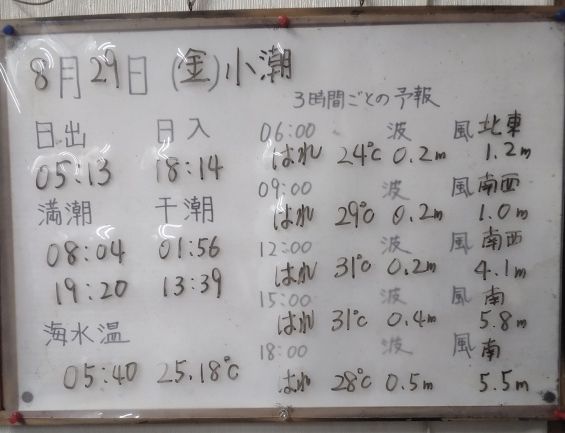 8月29日(金)小潮
日出 日入
05:13 18:14
満潮 干潮
08:04 01:56
19:20 13:39
海水温
05:40 25.18℃
3時間ごとの予報
06:00 波 風 北東
はれ 24℃ 0.2m 1.2m
09:00 波 風 南西
はれ 29℃ 0.2m 1.0m
12:00 波 風 南西
はれ 31℃ 0.2m 4.1m
15:00 波 風 南
はれ 31℃ 0.4m 5.8m
18:00 波 風 南
はれ 28℃ 0.5m 5.5m